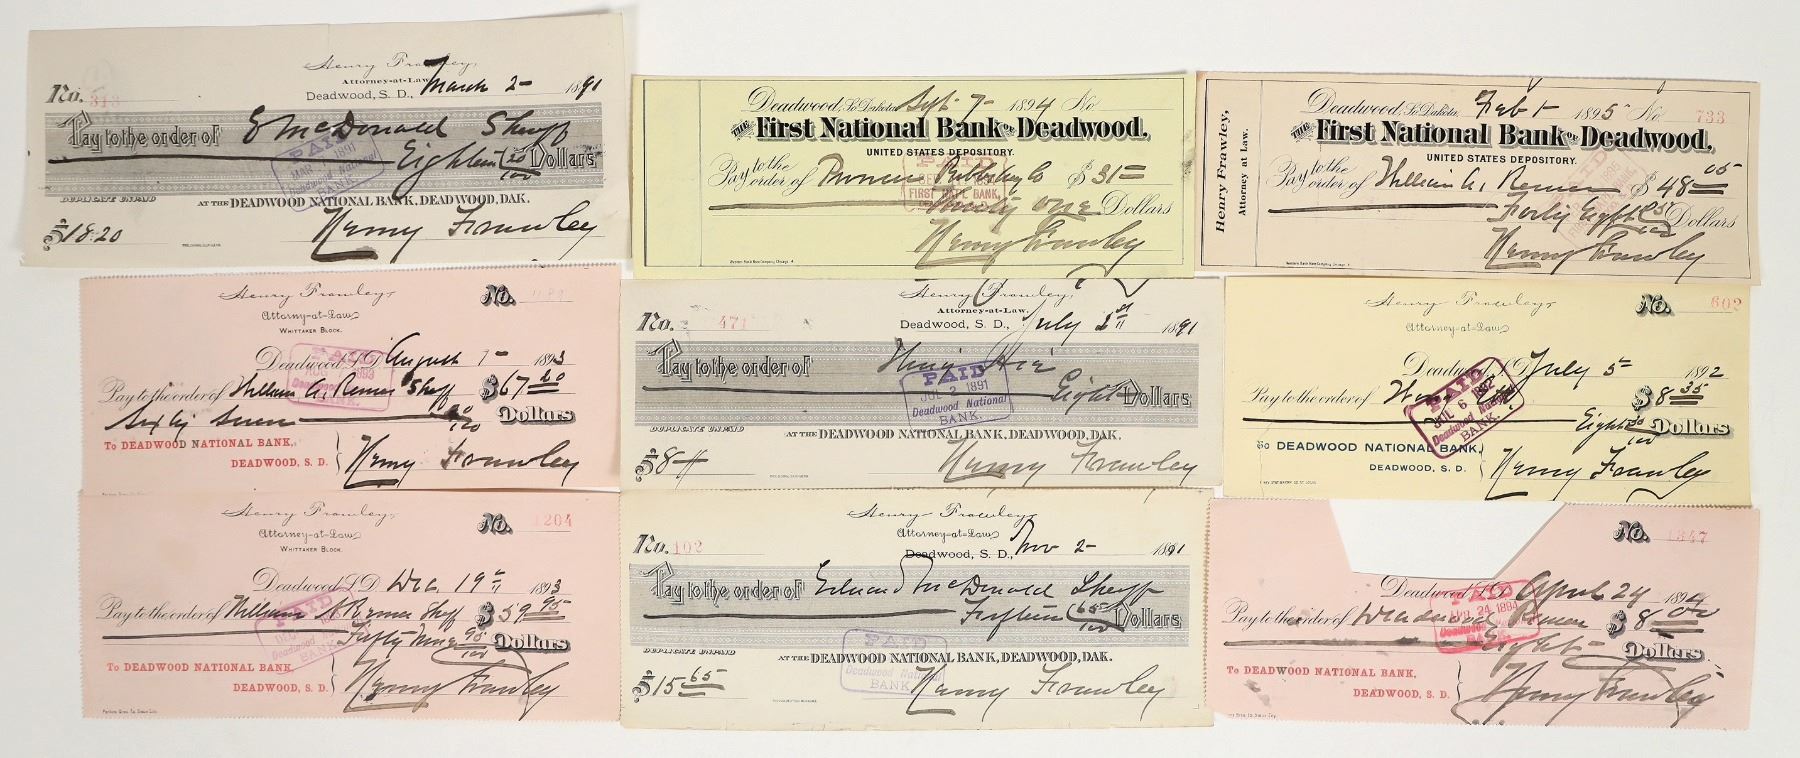 Henry Frawley,
Attorney-at-Law.
No. 313
Deadwood, S. D., March 2- 1891
Pay to the order of E McDonald Sheriff
Eighteen 20/100 Dollars
PAID
MAR 1891
Deadwood National
BANK.
DUPLICATE UNPAID
AT THE DEADWOOD NATIONAL BANK, DEADWOOD, DAK.
$18.20
Henry Frawley
Deadwood, So Dakota, Sept 7- 1894 No
THE First National Bank OF Deadwood.
UNITED STATES DEPOSITORY.
Pay to the order of Pioneer Publishing Co $31=
PAID
FIRST NAT'L BANK,
Thirty one Dollars
Henry Frawley
Western Bank Note Company, Chicago.
Henry Frawley,
Attorney at Law.
Deadwood, So Dakota, Feb 1- 1895 No 733
THE First National Bank OF Deadwood,
UNITED STATES DEPOSITORY.
Pay to the order of William A. Remer $48 05
PAID
Forty Eight 05/100 Dollars
Henry Frawley
Western Bank Note Company, Chicago.
Henry Frawley,
Attorney-at-Law,
WHITTAKER BLOCK.
No.
Deadwood, S.D. August 7- 1893
PAID
AUG 1893
Deadwood
BANK.
Pay to the order of William A. Remer Sheriff $67 20
Sixty Seven 20/100 Dollars
TO DEADWOOD NATIONAL BANK,
DEADWOOD, S. D.
Henry Frawley
Henry Frawley,
Attorney-at-Law.
No. 471
Deadwood, S. D., July 1st 1891
Pay to the order of
Eight Dollars
PAID
JUL 2 1891
Deadwood National
BANK.
DUPLICATE UNPAID
AT THE DEADWOOD NATIONAL BANK, DEADWOOD, DAK.
$8
Henry Frawley
Henry Frawley,
Attorney-at-Law,
No. 602
Deadwood, S.D. July 5- 1892
Pay to the order of $8 35
PAID
JUL 6 1892
Deadwood National
BANK.
Eight Dollars
To DEADWOOD NATIONAL BANK,
DEADWOOD, S. D.
Henry Frawley
Henry Frawley,
Attorney-at-Law,
WHITTAKER BLOCK.
No. 1204
Deadwood, S.D. Dec. 19th 1893
Pay to the order of William A Remer Sheriff $59 95
PAID
DEC
Deadwood National
BANK.
Fifty Nine 95/100 Dollars
TO DEADWOOD NATIONAL BANK,
DEADWOOD, S. D.
Henry Frawley
Perkins Bros. Co. Sioux City.
Henry Frawley,
Attorney-at-Law,
No. 102
Deadwood, S. D., Nov 2- 1891
Pay to the order of Edward McDonald Sheriff
Fifteen 65/100 Dollars
PAID
Deadwood National
BANK.
DUPLICATE UNPAID
AT THE DEADWOOD NATIONAL BANK, DEADWOOD, DAK.
$15 65
Henry Frawley
No. 1347
Deadwood, S.D. April 24 1894
PAID
APR. 24 1894
Deadwood National
BANK.
Pay to the order of Remer $8 00
Eight Dollars
TO DEADWOOD NATIONAL BANK,
DEADWOOD, S. D.
Henry Frawley